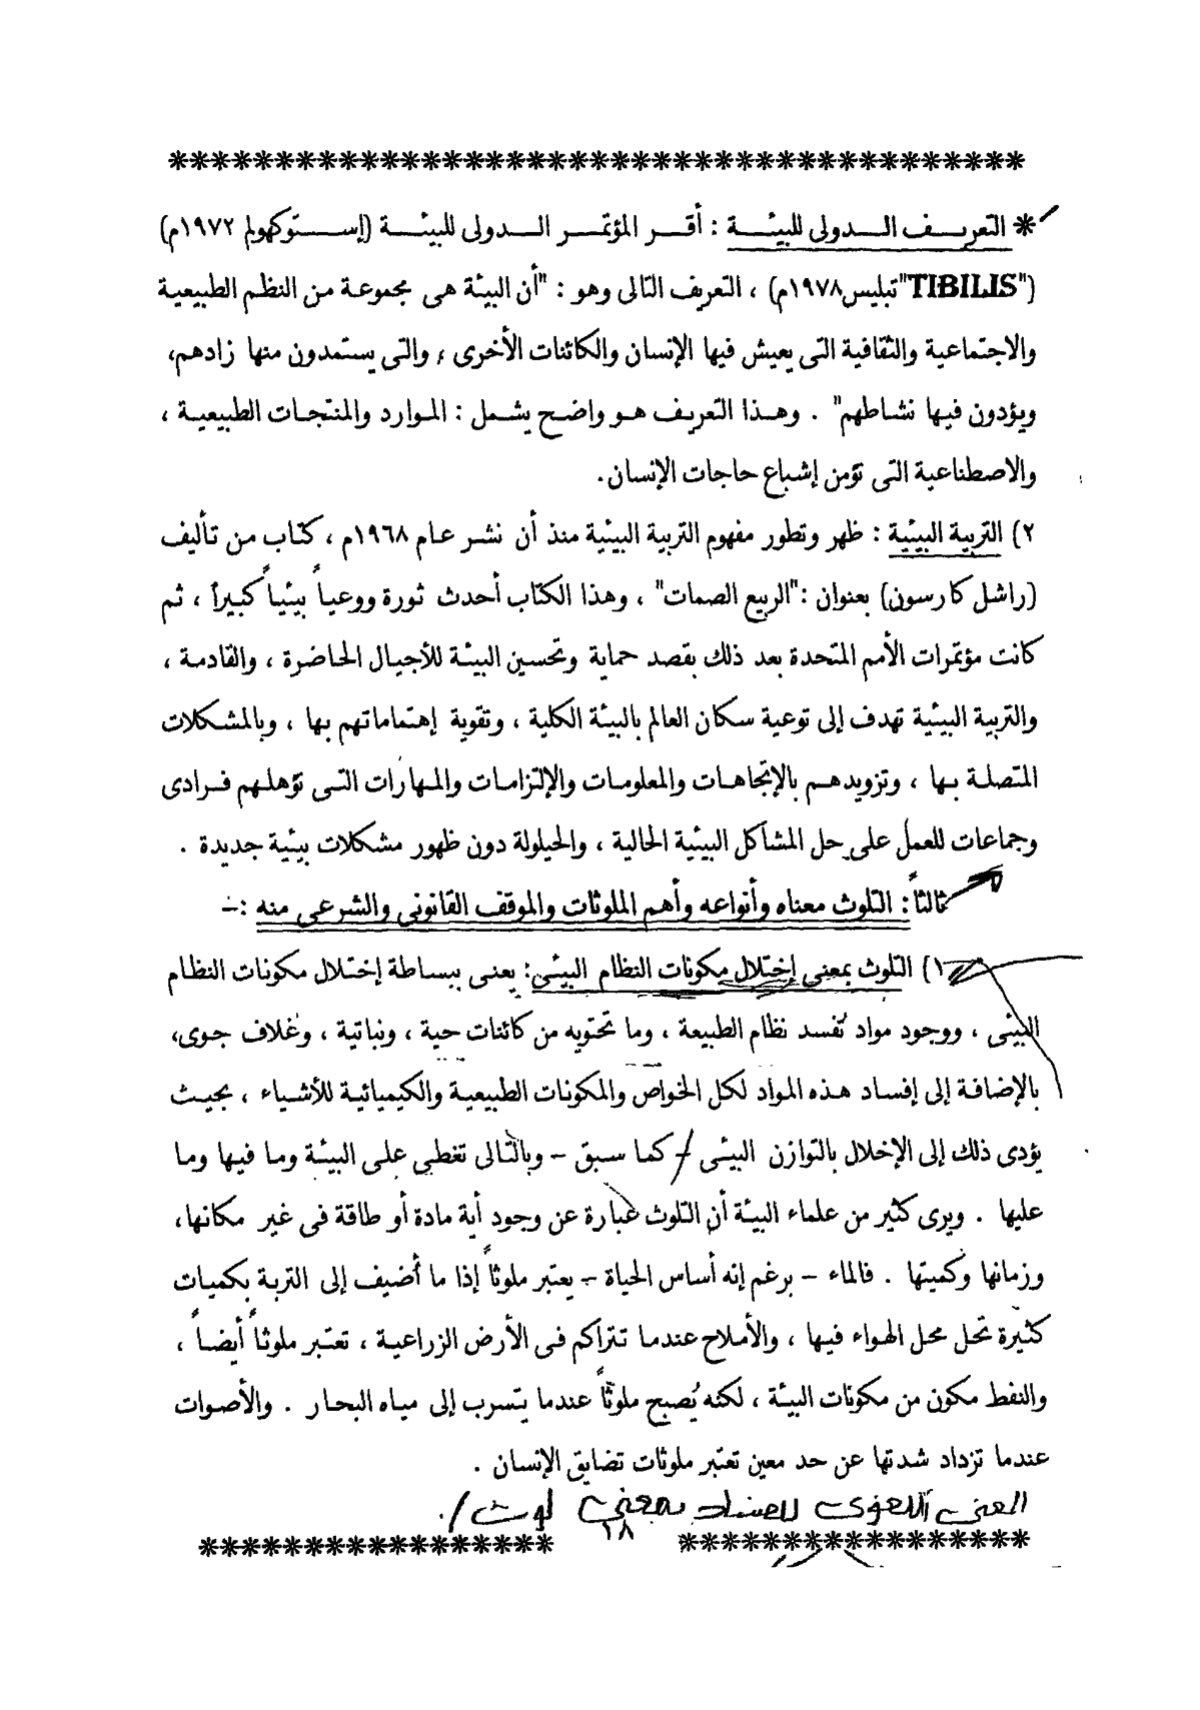 *****************************************
* التعريف الدولى للبيئة : أقر المؤتمر الدولى للبيئة (إستوكهولم ١٩٧٢م)
("TIBILIS"تبليس١٩٧٨م) ، التعريف التالى وهو : "أن البيئة هى مجموعة من النظم الطبيعية
والاجتماعية والثقافية التى يعيش فيها الإنسان والكائنات الأخرى ، والتى يستمدون منها زادهم،
ويؤدون فيها نشاطهم" . وهذا التعريف هو واضح يشمل : الموارد والمنتجات الطبيعية ،
والاصطناعية التى تؤمن إشباع حاجات الإنسان.
٢) التربية البيئية : ظهر وتطور مفهوم التربية البيئية منذ أن نشر عام ١٩٦٨م ، كتاب من تأليف
(راشل كارسون) بعنوان :"الربيع الصمات" ، وهذا الكتاب أحدث ثورة ووعياً بيئياً كبيراً ، ثم
كانت مؤتمرات الأمم المتحدة بعد ذلك بقصد حماية وتحسين البيئة للأجيال الحاضرة ، والقادمة ،
والتربية البيئية تهدف إلى توعية سكان العالم بالبيئة الكلية ، وتقوية إهتماماتهم بها ، وبالمشكلات
المتصلة بها ، وتزويدهم بالإتجاهات والمعلومات والإلتزامات والمهارات التى تؤهلهم فرادى
وجماعات للعمل على حل المشاكل البيئية الحالية ، والحيلولة دون ظهور مشكلات بيئية جديدة .
ثالثاً: التلوث معناه وأنواعه وأهم الملوثات والموقف القانونى والشرعى منه :-
١) التلوث بمعنى إختلال مكونات النظام البيئى: يعنى ببساطة إختلال مكونات النظام
البيئى ، ووجود مواد تُفسد نظام الطبيعة ، وما تحتويه من كائنات حية ، ونباتية ، وغلاف جوى،
بالإضافة إلى إفساد هذه المواد لكل الخواص والمكونات الطبيعية والكيميائية للأشياء ، بحيث
يؤدى ذلك إلى الإخلال بالتوازن البيئى - كما سبق - وبالتالى تغطى على البيئة وما فيها وما
عليها . ويرى كثير من علماء البيئة أن التلوث عبارة عن وجود أية مادة أو طاقة فى غير مكانها،
وزمانها وكميتها . فالماء - برغم إنه أساس الحياة - يعتبر ملوثاً إذا ما أضيف إلى التربة بكميات
كثيرة تحل محل الهواء فيها ، والأملاح عندما تتراكم فى الأرض الزراعية ، تعتبر ملوثاً أيضاً ،
والنفط مكون من مكونات البيئة ، لكنه يُصبح ملوثاً عندما يتسرب إلى مياه البحار . والأصوات
عندما تزداد شدتها عن حد معين تعتبر ملوثات تضايق الإنسان .
المعنى اللغوى للفساد بمعنى لوث /.
***************** ١٨ *****************